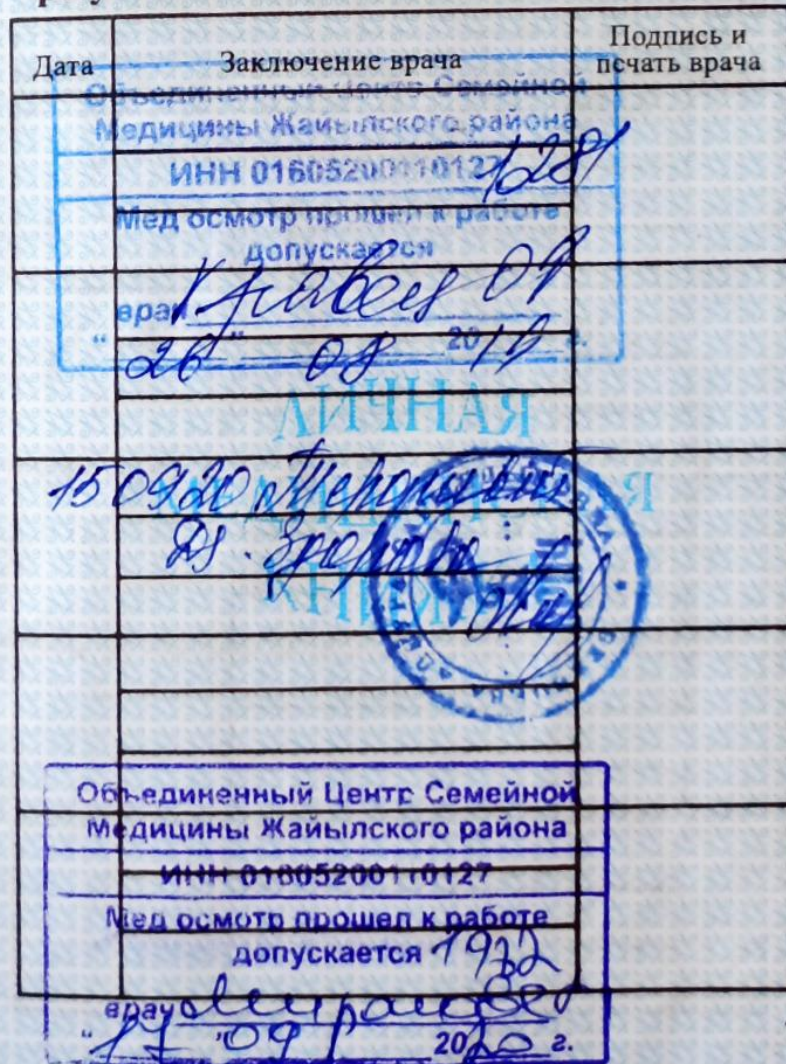 Дата Заключение врача Подпись и печать врача
Объединенный Центр Семейной
Медицины Жайылского района
ИНН 01605200110127 1281
Мед осмотр прошел к работе
допускается
врач Кравец ОФ
" 26 " 08 2019 г.
ЛИЧНАЯ
15 09 20
Ds. Здорова
Объединенный Центр Семейной
Медицины Жайылского района
ИНН 01605200110127
Мед осмотр прошел к работе
допускается 1932
врач
" 17 " 09 2020 г.